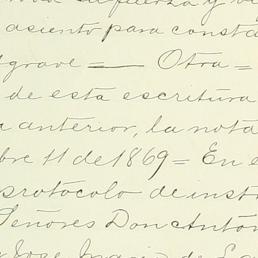 asiento para consta
grave = Otra =
de esta escritura
a anterior, la nota
bre 11 de 1869 = En e
protócolo de inst
Señores Don Antón